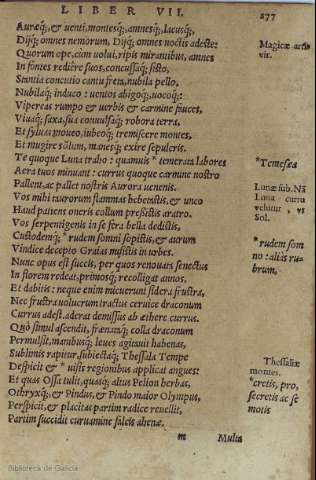 LIBER VII.
277
Auræq́;, & uenti, montesq́;, amnesq́;, lacusq́;,
Dijq́; omnes nemorum, Dijq́; omnes noctis adeste:
Quorum ope, cum uolui, ripis mirantibus, amnes
In fontes rediêre suos, concussaq́; sisto,
Stantia concutio cantu freta, nubila pello,
Nubilaq́; induco: uentos abigoq́;, uocoq́;:
Vipereas rumpo & uerbis & carmine fauces,
Viuaq́; saxa, sua conuulsaq́; robora terra,
Et syluas moueo, iubeoq́; tremiscere montes,
Et mugire solum, manesq́; exire sepulcris.
Te quoque Luna traho: quamuis * temerata labores
Aera tuos minuant: currus quoque carmine nostro
Pallent, ac pallet nostris Aurora uenenis.
Vos mihi taurorum flammas hebetastis, & unco
Haud patiens oneris collum pressistis aratro.
Vos serpentigenis in se fera bella dedistis,
Custodemq́; * rudem somni sopistis, & aurum
Vindice decepto Graias misistis in urbes.
Nunc opus est succis, per quos renouata senectus
In florem redeat, primosq́; recolligat annos,
Et dabitis: neque enim micuerunt sidera frustra,
Nec frustra uolucrum tractus ceruice draconum
Currus adest. aderat demissus ab æthere currus.
Quò simul ascendit, frænataq́; colla draconum
Permulsit, manibusq́; leues agitauit habenas,
Sublimis rapitur, subiectaq́; Thessala Tempe
Despicit & * uisis regionibus applicat angues:
Et quas Ossa tulit, quasq́; altus Pelion herbas,
Othryxq́;, & Pindus, & Pindo maior Olympus,
Perspicit, & placitas partim radice reuellit,
Partim succidit curuamine falcis ahenæ.
m
Multa
Magicæ artis
vis.
*Temesæa
Lunæ sub. Nã
Luna curru
vehitur, vt
Sol.
*rudem som
no: alias ru
brum,
Thessaliæ
montes.
*cretis, pro,
secretis ac se
motis
Biblioteca de Galicia